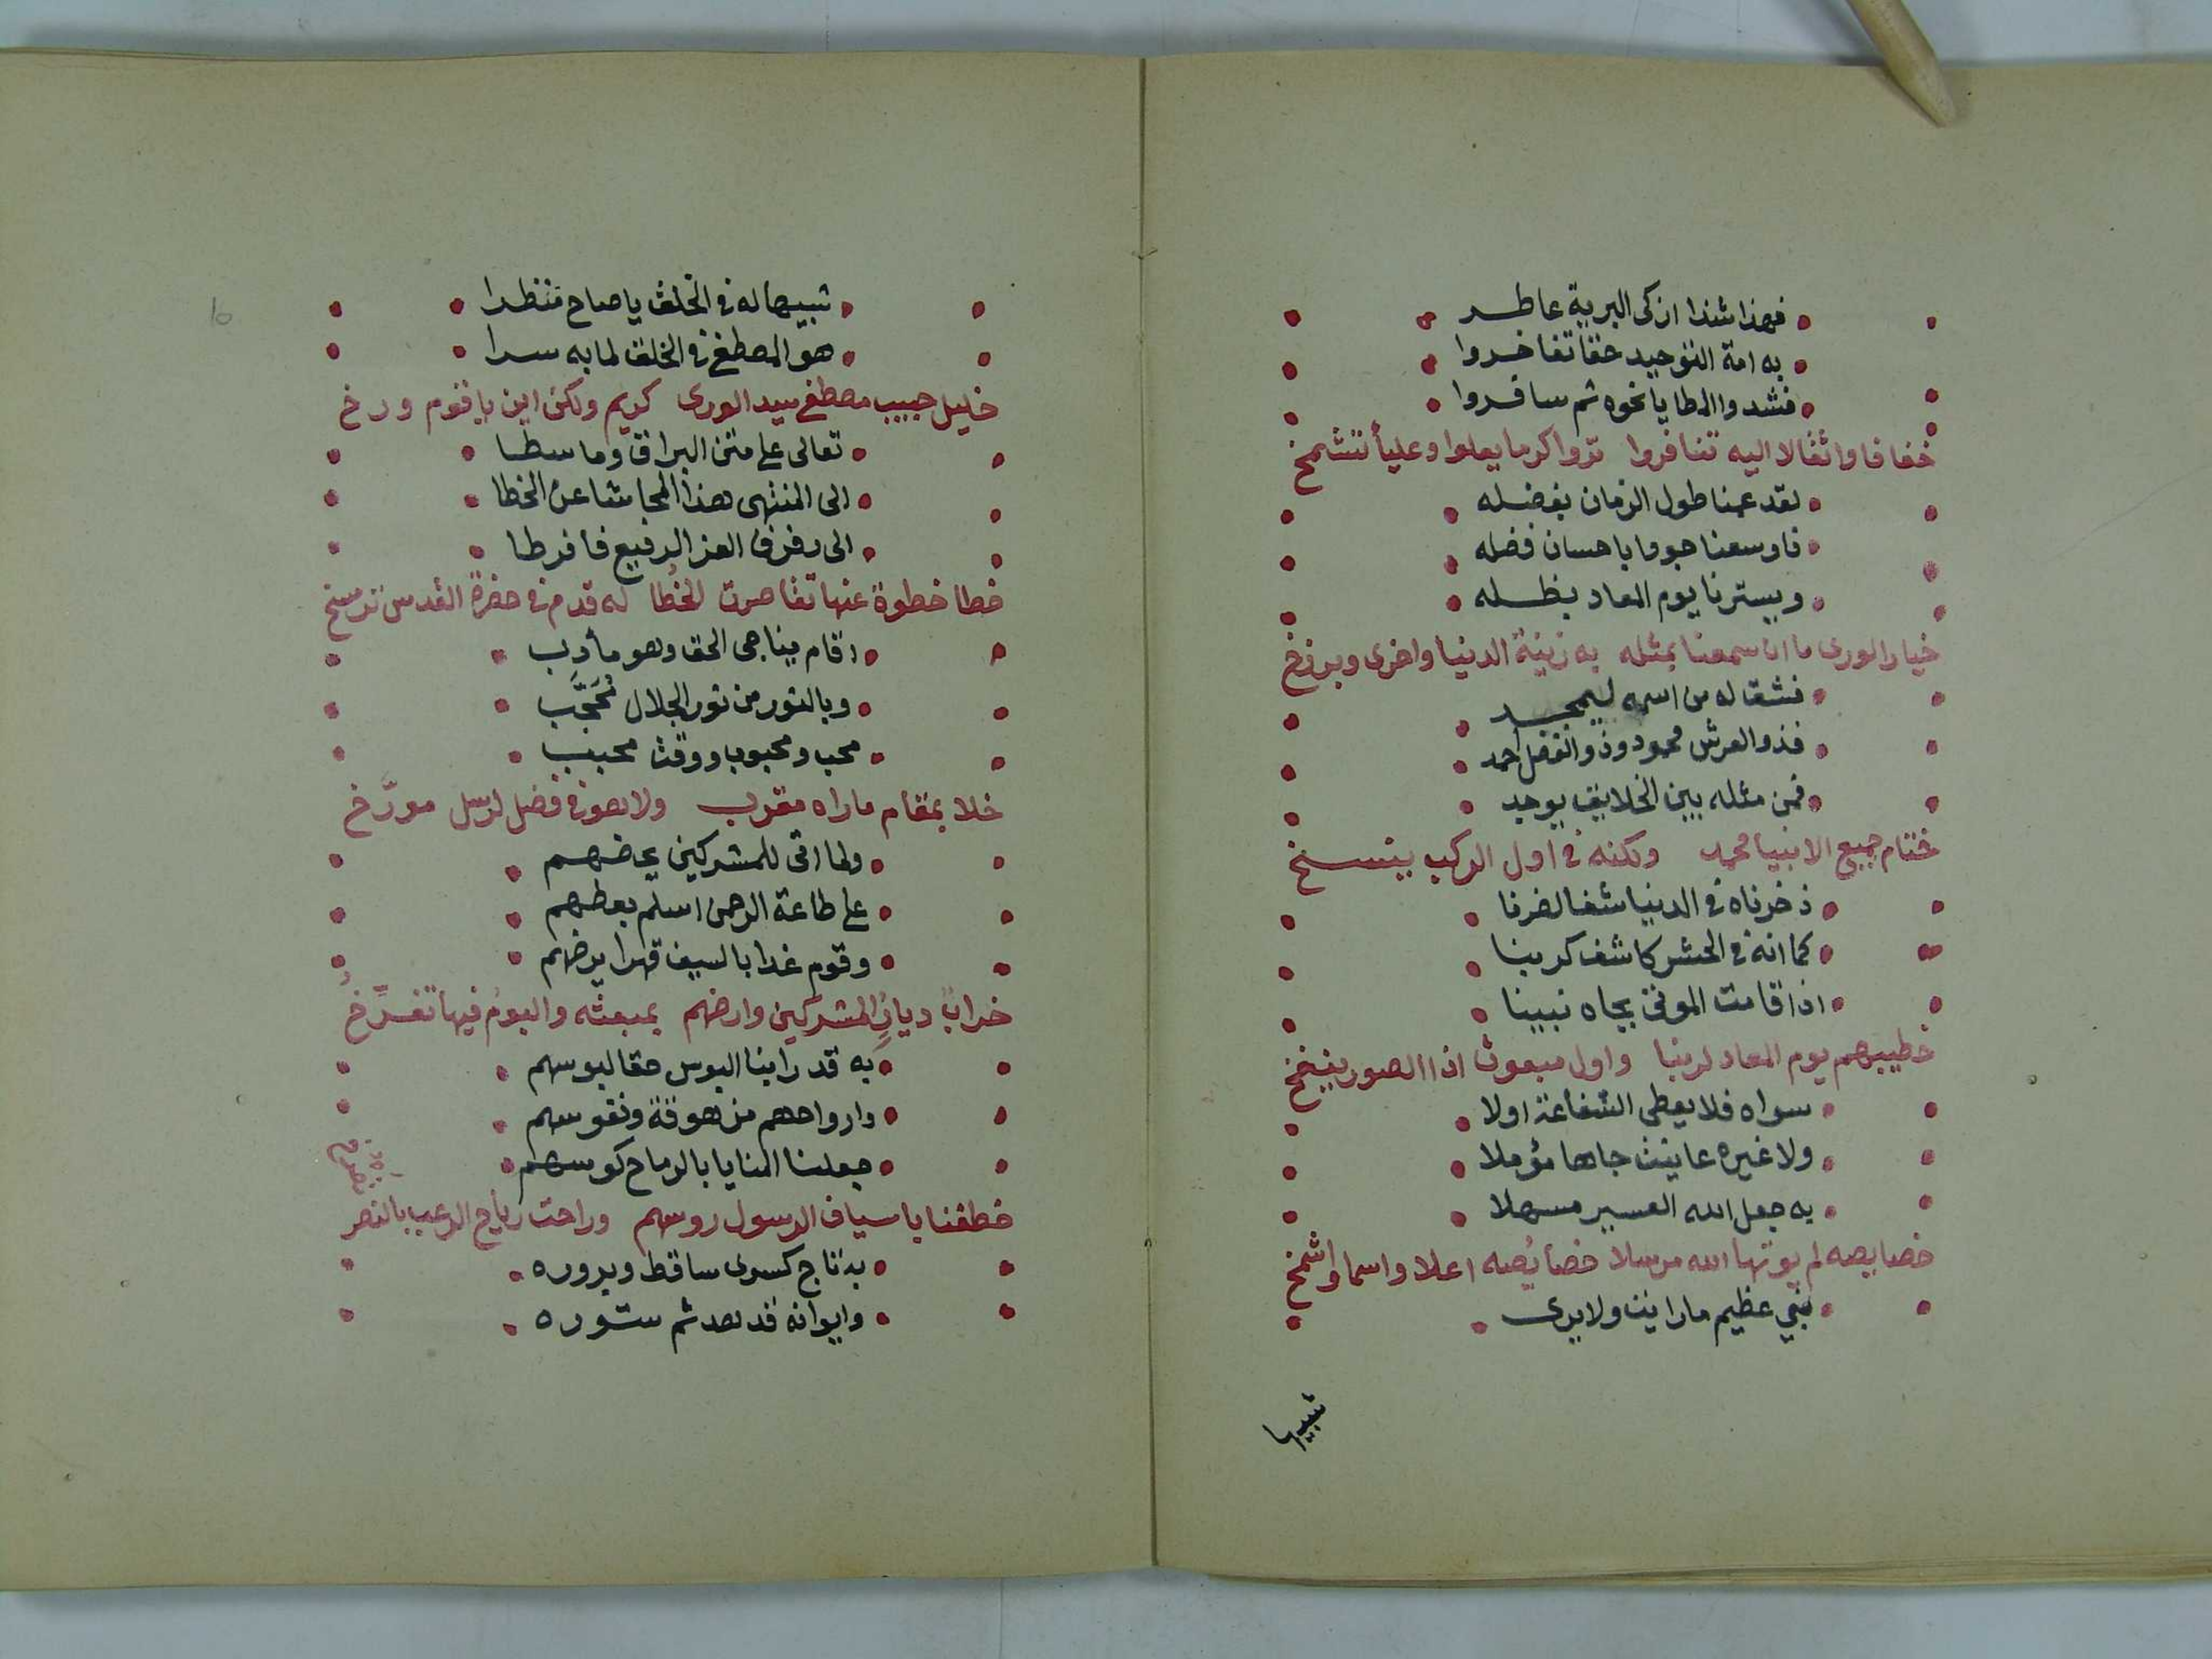 فهذا شذا ازكى البرية عاطر
به امة التوحيد حقا تفاخروا
فشدوا المطايا نحوه ثم سافروا
خفافا واثقالا اليه تنافروا تروا كرما يعلوا وعليأ تتشمخ
لقد عمنا طول الزمان بفضله
فاوسعنا جودا باحسان فضله
ويسترنا يوم المعاد بظله
خيار الورى ما ان سمعنا بمثله به زينة الدنيا واخرى وبرزخ
فشق له من اسمه ليمجد
فذو العرش محمود وذو الفضل احمد
فمن مثله بين الخلايق يوجد
ختام جميع الانبيا محمد ولكنه في اول الركب ينسخ
ذخرناه في الدنيا شفا لضرنا
كما انه في الحشر كاشف كربنا
اذا قامت الموتى بجاه نبينا
خطيبهم يوم المعاد لربنا واول مبعوث اذا الصور ينفخ
سواه فلا يعطى الشفاعة اولا
ولا غيره عاينت جاها مؤملا
به جعل الله العسير مسهلا
خصايصه لم يوتها الله مرسلا خصايصه اعلا واسما واشمخ
نبي عظيم ما رايت ولا يرى
شبيها
شبيها له في الخلق يا صاح منظرا
هو المصطفى في الخلق لما به سرا
خليل حبيب مصطفى سيد الورى كريم ولكن اين يا قوم ورخ
تعالى على متن البراق وما سطا
الى المنتهى هذا المجا شا عن الخطا
الى رفرف العز الرفيع فافرطا
خطا خطوة عنها تقاصرت الخُطا له قدم في حضرة القدس ترسخ
اقام يناجي الحق وهو مأدب
وبالنور من نور الجلال مُحَجَّب
محب ومحبوب ووقت محبب
خلا بمقام ماراه مقرب ولا هو في فضل لرسل مورَّخ
ولما اتى للمشركين يحضهم
على طاعة الرحمن اسلم بعظهم
وقوم غدا بالسيف قهرا يرضهم
خرابٌ ديارُ المشركين وارضهم بمبعثه والبومُ فيها تفرِّخُ
به قد راينا البوس حقا لبوسهم
وارواحهم مزهوقة ونفوسهم
جعلنا المنايا بالرماح كوسهم
خطفنا باسياف الرسول روسهم وراحت رياح الرعب بالنصر
به تاج كسرى ساقط وبروره
وايوانه قد هد ثم ستوره